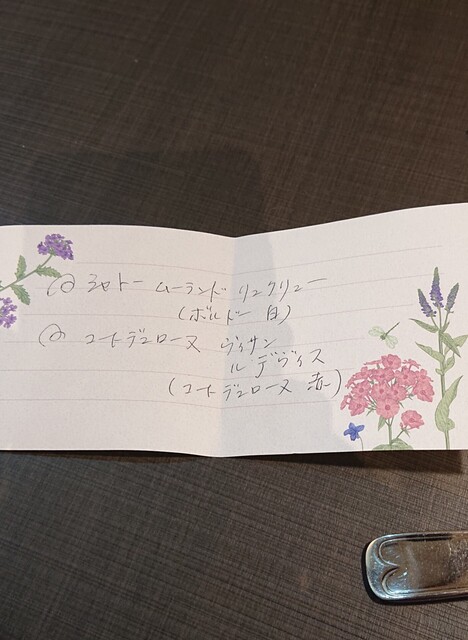 シャトー ムーランド リュクリュー
(ボルドー 白)
コートデュローヌ ヴィサン
ル デヴィス
(コートデュローヌ 赤)